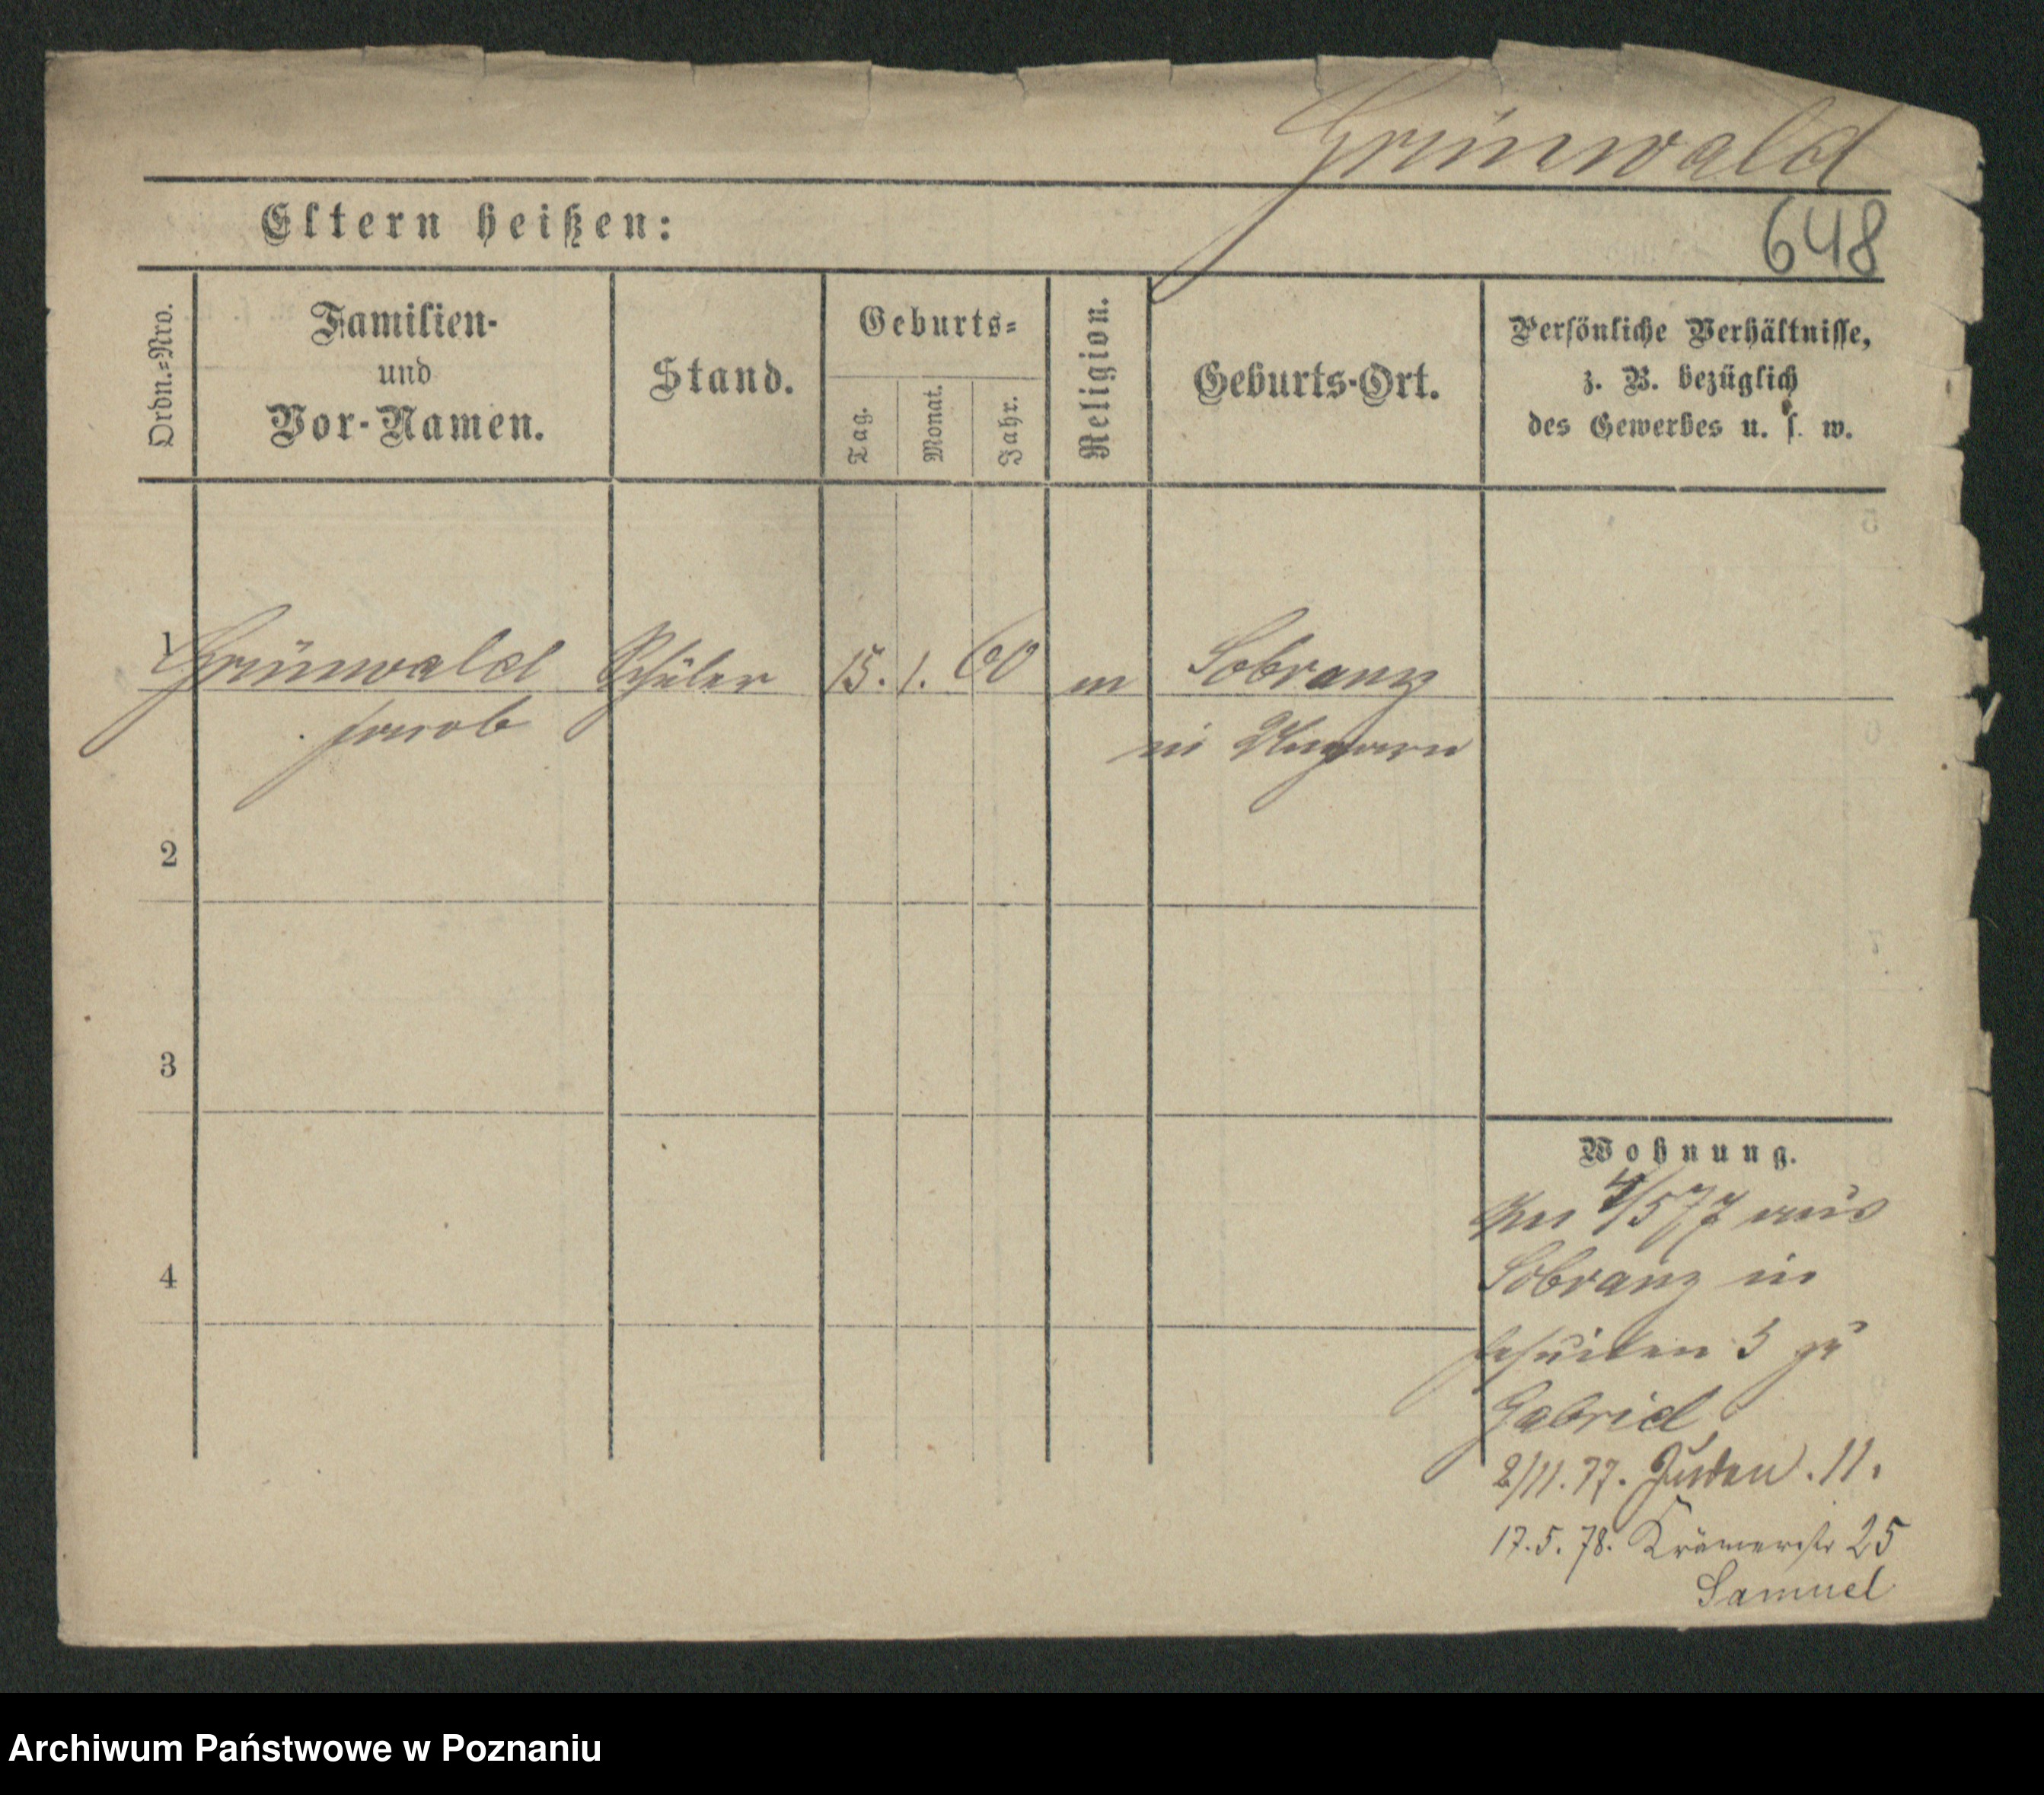 Grünwald
648
Eltern heißen:
Ordn.=Nro.
Familien-
und
Vor-Namen.
Stand.
Geburts=
Tag.
Monat.
Jahr.
Religion.
Geburts-Ort.
Persönliche Verhältnisse,
z. B. bezüglich
des Gewerbes u. s. w.
1 Grünwald Schüler 15. 1. 60 m Sobranz
Jacob in Ungarn
2
3
4
Wohnung.
4/5 77 aus
Sobranz in
Jesuiten 5 zu
Gabriel
2/11. 77. Juden. 11.
17. 5. 78. Krämerstr 25
Samuel
Archiwum Państwowe w Poznaniu